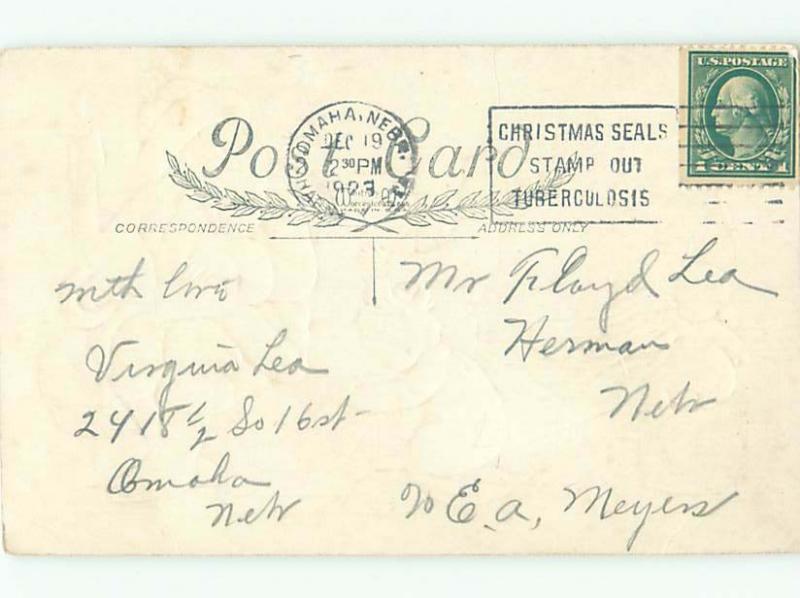 Post Card
OMAHA, NEBR.
DEC 19
2 30 PM
1923
CHRISTMAS SEALS
STAMP OUT
TUBERCULOSIS
U.S. POSTAGE
1 CENT 1
CORRESPONDENCE
ADDRESS ONLY
with love
Virginia Lea
2418 1/2 So 16 st
Omaha
Nebr
Mr Floyd Lea
Herman
Nebr
% E. A, Meyers